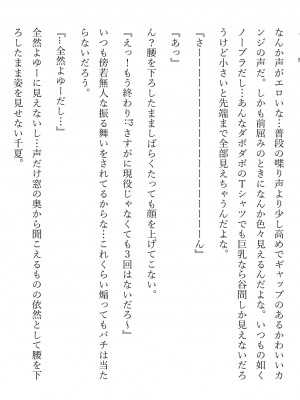 なんか声がエロいな…普段の喋り声より少し高めでギャップのあるかわいいカ
ンジの声だ。しかも前屈みのときになんか色々見えるんだよな。いつもの如く
ノーブラだし…あんなダボダボのTシャツでも巨乳なら谷間しか見えないだろ
うけど小さいと先端まで全部見えちゃうんだよな。
『さーーーーーーーーーーーん』
『あっ』
ん？腰を下ろしたまましばらくたっても顔を上げてこない。
『えっ！もう終わり!?さすがに現役じゃなくても3回はないだろ〜』
いつも傍若無人な振る舞いをされてるからな…これくらい煽ってもバチは当た
らないだろう。
『…全然よゆーだし…』
全然よゆーに見えないし…声だけ窓の奥から聞こえるものの依然として腰を下
ろしたまま姿を見せない千夏。